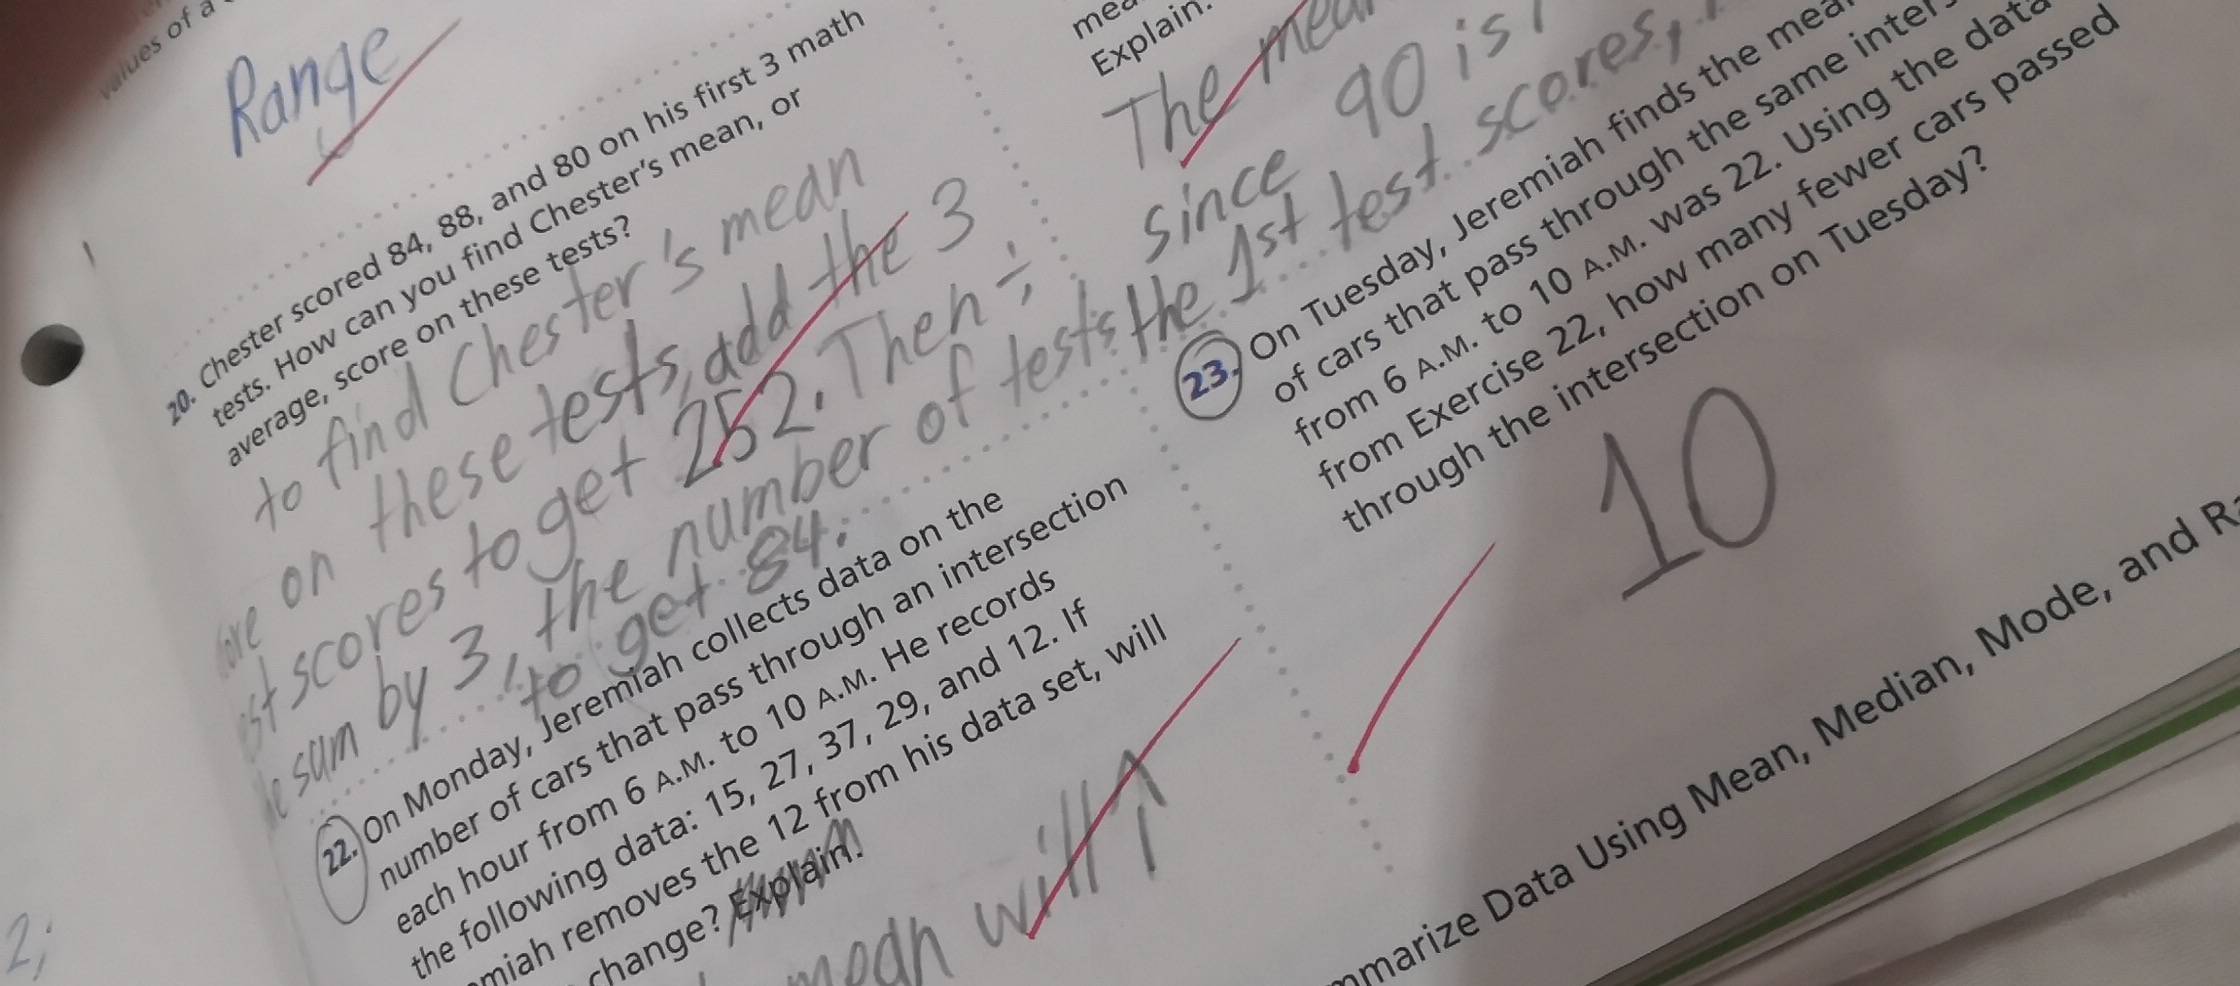 values of a
Range
20. Chester scored 84, 88, and 80 on his first 3 math
tests. How can you find Chester's mean, or
average, score on these tests?
to find Chester's mean
on these tests, add the 3
scores to get 252. Then ÷
sum by 3, the number of tests
to get 84.
22. On Monday, Jeremiah collects data on the
number of cars that pass through an intersection
each hour from 6 A.M. to 10 A.M. He records
the following data: 15, 27, 37, 29, and 12. If
miah removes the 12 from his data set, will
change? Explain.
mean will ↑
2;
Explain.
The
since 90 is
the 1st test scores,
23. On Tuesday, Jeremiah finds the
of cars that pass through the same
from 6 A.M. to 10 A.M. was 22. Using the data
from Exercise 22, how many fewer cars passed
through the intersection on Tuesday?
10
mmarize Data Using Mean, Median, Mode, and